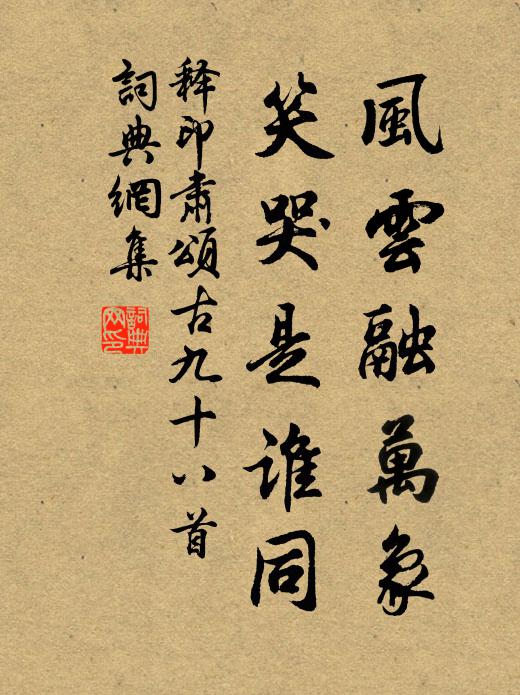 風雲融萬象
笑哭是誰同
释印肅頌古九十八首
詞典網集
詞典网印